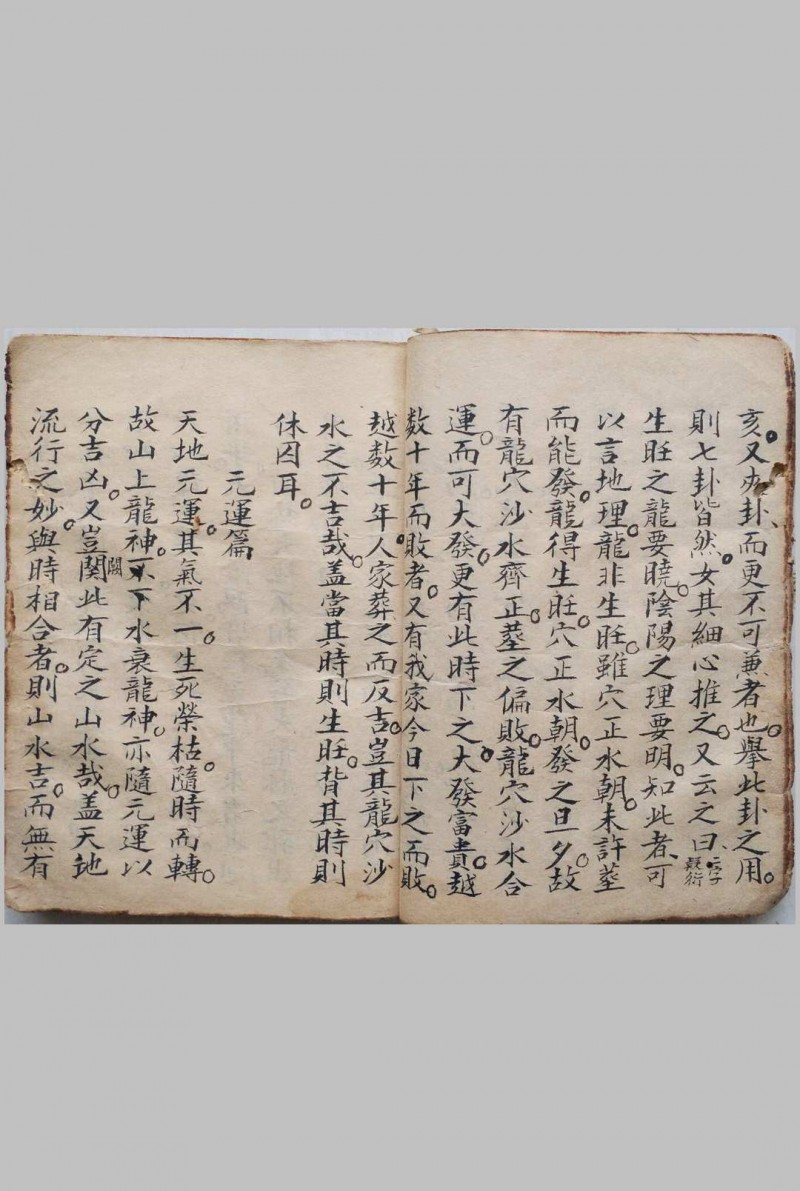 亥。又卦、而更不可兼者也。舉此卦之用。
則七卦皆然。女其細心推之。又云之曰、云字疑衍
生旺之龍要曉。陰陽之理要明。知此者、可
以言地理。龍非生旺。雖穴正水朝。未許塟
而能發。龍得生旺。穴正水朝。發之旦夕。故
有龍穴沙水齊正。塟之偏敗。龍穴沙水合
運。而可大發。更有此時下之大發富貴。越
数十年而敗者。又有我家今日下之而敗。
越数十年。人家葬之而反吉。豈其龍穴沙
水之不吉哉。盖當其時則生旺。背其時則
休囚耳。
元運篇
天地元運。其氣不一。生死榮枯。隨時而轉。
故山上龍神。不下水裏龍神。亦隨元運以
分吉凶。又豈関闕此有定之山水哉。盖天地
流行之妙。與時相合者。則山水吉。而無有